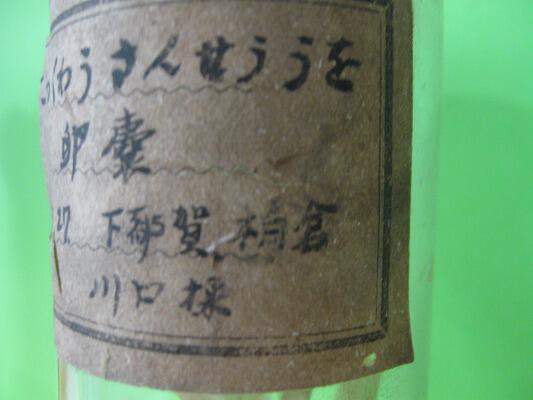 くわうさんせううを
卵嚢
27. 下都賀 柏倉
川口採